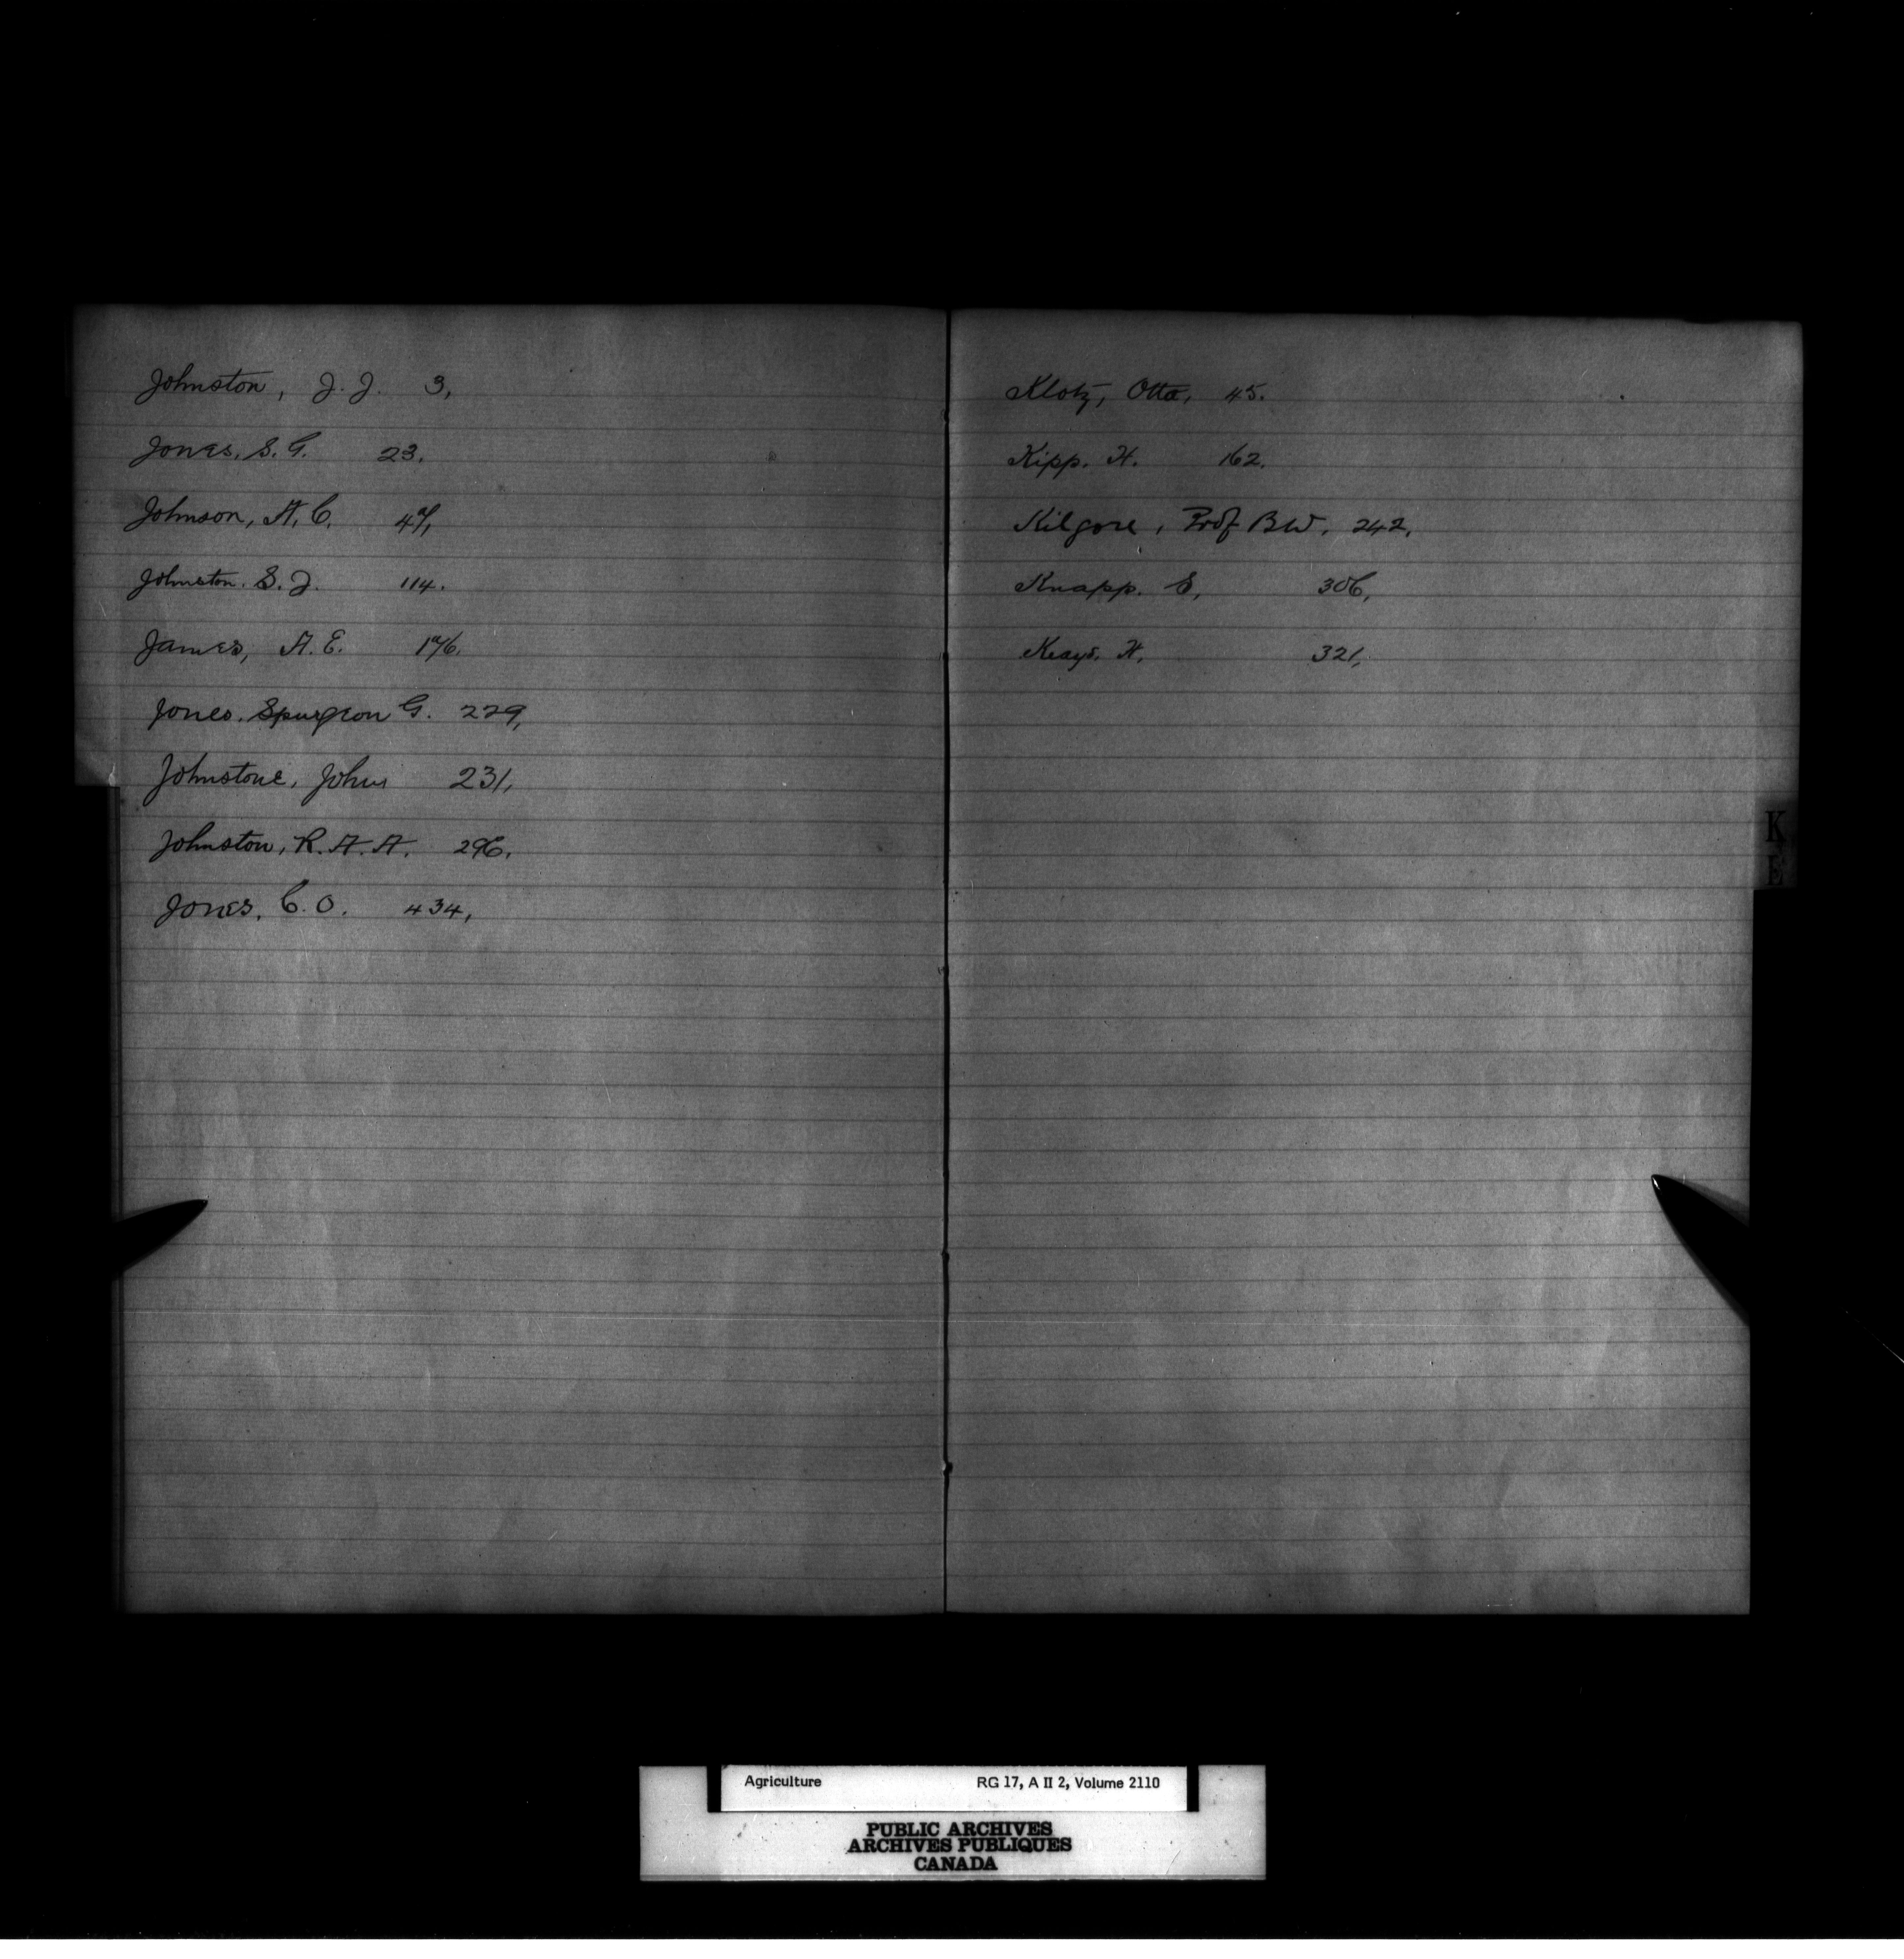 Johnston, J. J. 3,
Jones, S. G. 23.
Johnson, A. C. 47,
Johnston. S. J. 114.
James, A. E. 176.
Jones. Spurgeon G. 229,
Johnstone, John 231,
Johnston, R. A. A. 296,
Jones, C. O. 434,
Klotz, Otto, 45.
Kipp. H. 162.
Kilgore, Prof B W, 242,
Knapp. S, 306,
Keays, H, 321,
K
E
Agriculture RG 17, A II 2, Volume 2110
PUBLIC ARCHIVES
ARCHIVES PUBLIQUES
CANADA